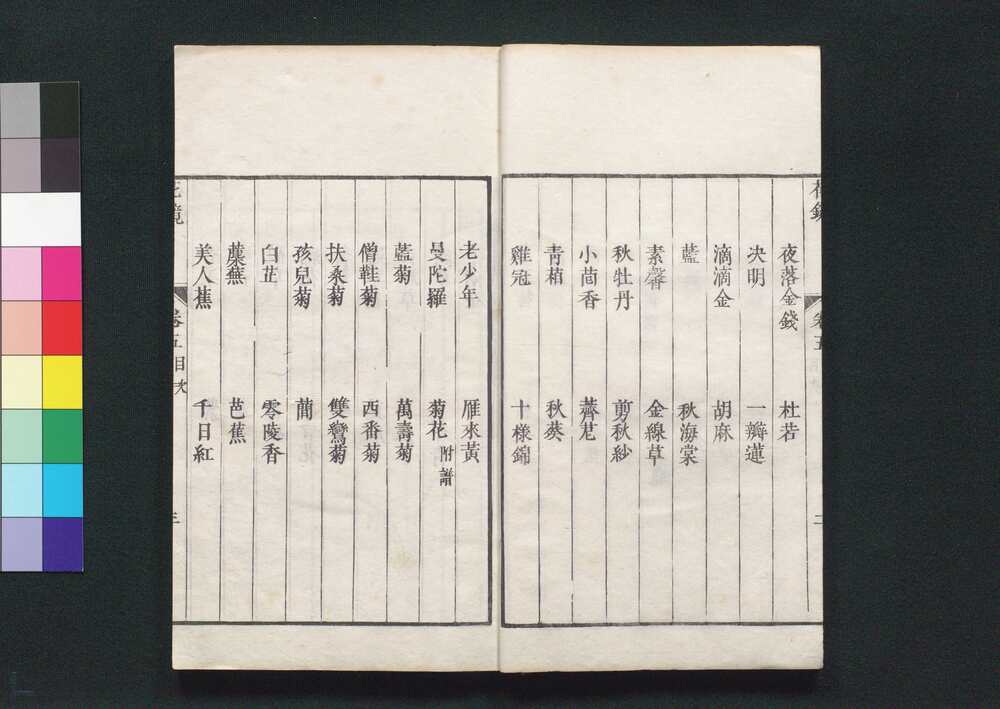 花鏡 卷五 二
夜落金錢 杜若
决明 一瓣蓮
滴滴金 胡麻
藍 秋海棠
素馨 金線草
秋牡丹 剪秋紗
小茴香 薺苨
青葙 秋葵
雞冠 十樣錦
老少年 雁來黃
曼陀羅 菊花附譜
藍菊 萬壽菊
僧鞋菊 西番菊
扶桒菊 雙鸞菊
孩兒菊 蘭
白芷 零陵香
蘪蕪 芭蕉
美人蕉 千日紅
花鏡 卷五目次 三